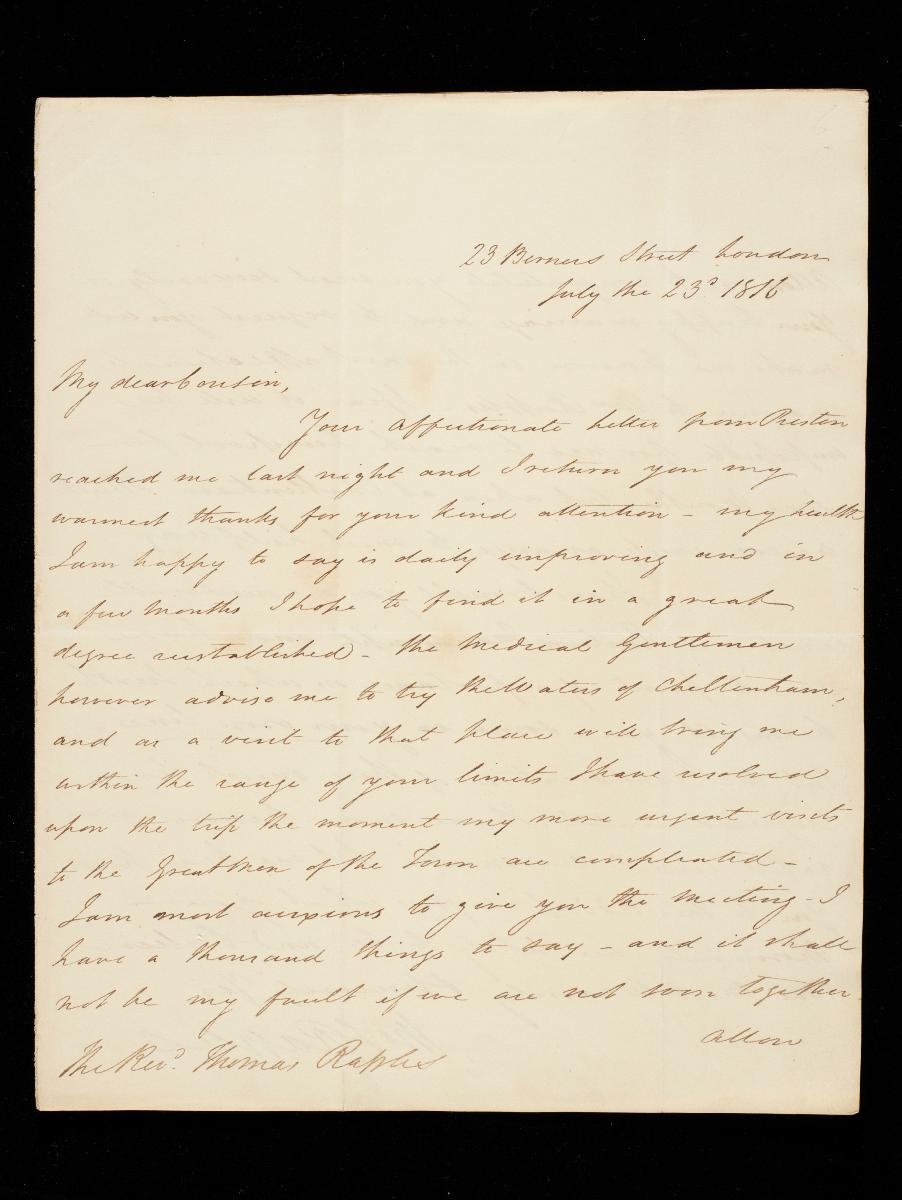 23 Berners Street London
July the 23d. 1816
My dear Cousin,
Your affectionate letter from Preston
reached me last night and I return you my
warmest thanks for your kind attention - my health
I am happy to say is daily improving and in
a few Months I hope to find it in a great
degree reestablished - the Medical Gentlemen
however advise me to try the Waters of Cheltenham,
and as a visit to that place will bring me
within the range of your limits I have resolved
upon the trip the moment my more urgent visits
to the Great Men of the Town are compleated -
I am most anxious to give you the Meeting - I
have a thousand things to say - and it shall
not be my fault if we are not soon together
Allow
The Revd. Thomas Raffles